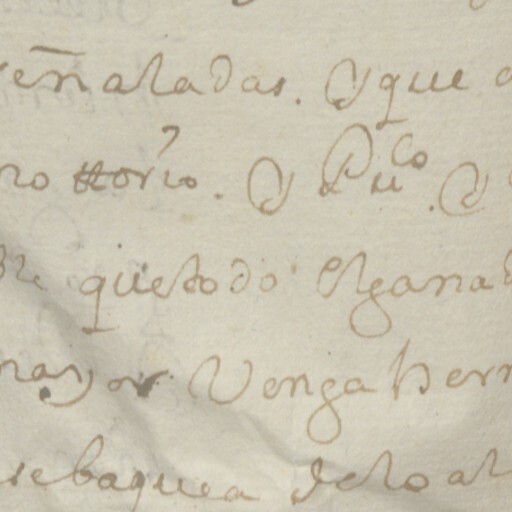 señaladas. Y que
no ttorio. Y Puco. Y
que todo Elgana
mayor Venga herr
se baquea delo al